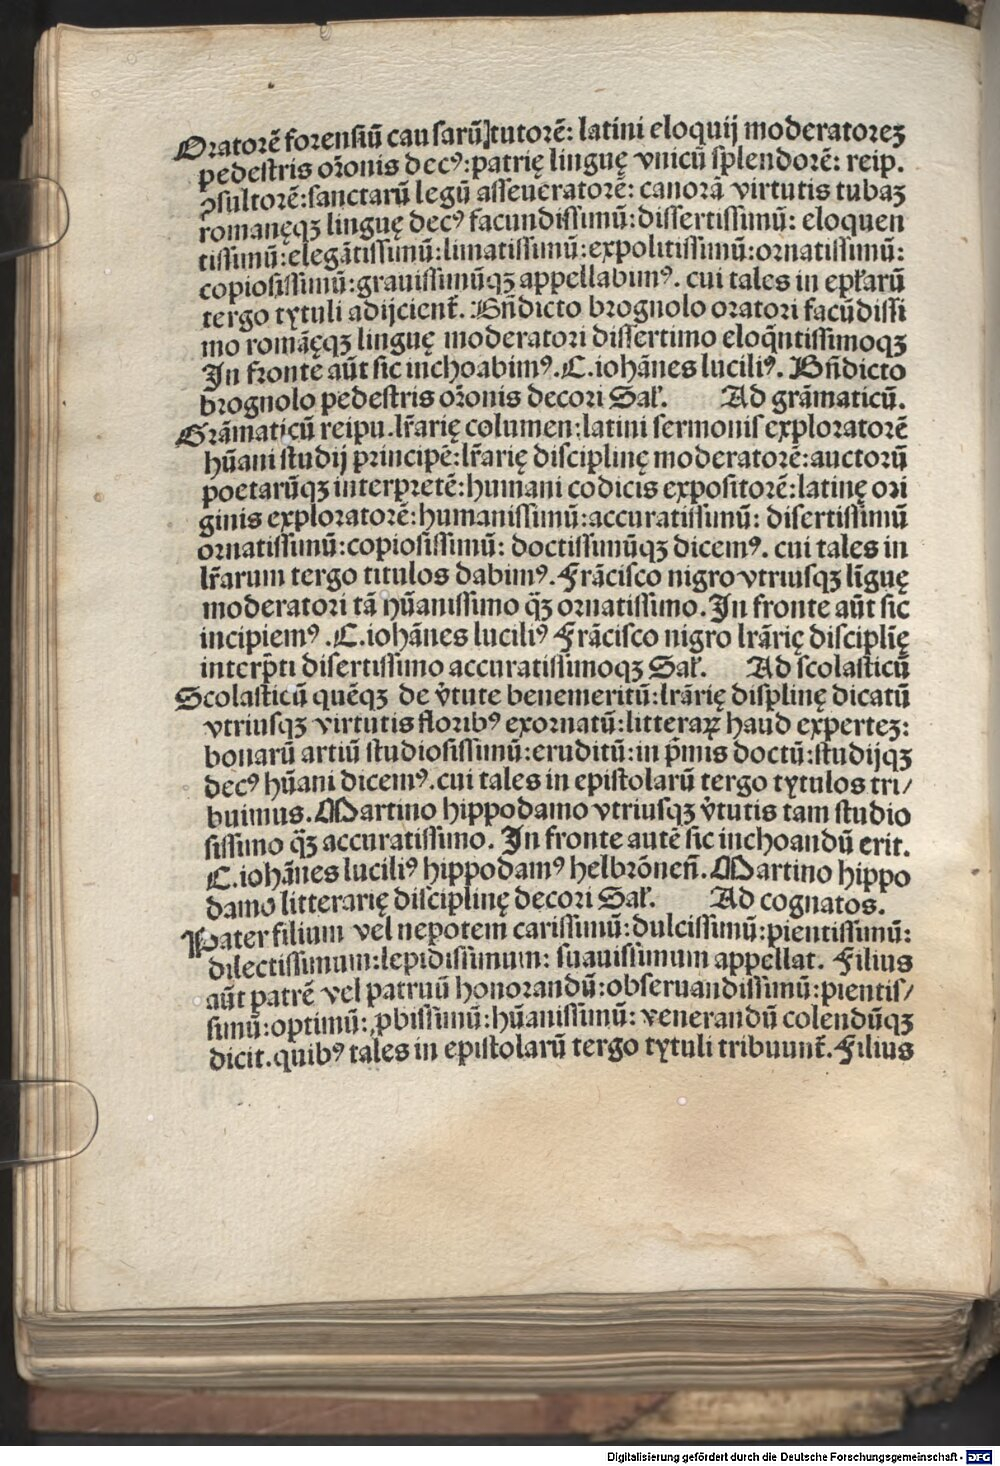 Oratorē forensiū causarū]tutorē: latini eloquij moderatoreꝫ
pedestris or̄onis decꝰ:patrię linguę vnicū splendorē: reip.
ꝯsultorē:sanctarū legū asseueratorē: canorā virtutis tubaꝫ
romanęqꝫ linguę decꝰ facundissimū:dissertissimū: eloquen
tissimū:elegātissimū:limatissimū:expolitissimū:ornatissimū:
copiosissimū:grauissimūqꝫ appellabimꝰ. cui tales in epl̄arū
tergo tytuli adijcient̄. Bn̄dicto brognolo oratori facūdissi
mo romāęqꝫ linguę moderatori dissertimo eloq̄ntissimoqꝫ
In fronte aūt sic inchoabimꝰ. C. iohānes luciliꝰ. Bn̄dicto
brognolo pedestris or̄onis decori Sal̄. Ad grāmaticū.
Grāmaticū reipu.lr̄arię columen:latini sermonis exploratorē
hūani studij principē:lr̄arię disciplinę moderatorē:auctorū
poetarūqꝫ interpretē:humani codicis expositorē:latinę ori
ginis exploratorē:humanissimū:accuratissimū: disertissimū
ornatissimū:copiosissimū: doctissimūqꝫ dicemꝰ. cui tales in
lr̄arum tergo titulos dabimꝰ. Frācisco nigro vtriusqꝫ līguę
moderatori tā hūanissimo q̄ꝫ ornatissimo. In fronte aūt sic
incipiemꝰ. C. iohānes luciliꝰ Frācisco nigro lrārię discipliē
interp̄ti disertissimo accuratissimoqꝫ Sal̄. Ad scolasticū
Scolasticū quēqꝫ de v̄tute benemeritū:lrārię displinę dicatū
vtriusqꝫ virtutis floribꝰ exornatū:litteraꝝ haud experteꝫ:
bonarū artiū studiosissimū:eruditū:in p̄mis doctū:studijqꝫ
decꝰ hūani dicemꝰ.cui tales in epistolarū tergo tytulos tri/
buimus. Martino hippodamo vtriusqꝫ v̄tutis tam studio
sissimo q̄ꝫ accuratissimo. In fronte autē sic inchoandū erit.
C. iohānes luciliꝰ hippodamꝰ helbrōnen̄. Martino hippo
damo litterarię disciplinę decori Sal̄. Ad cognatos.
Pater filium vel nepotem carissimū:dulcissimū:pientissimū:
dilectissimum:lepidissimum: suauissimum appellat. Filius
aūt patrē vel patruū honorandū:obseruandissimū:pientis/
simū:optimū: ꝓbissimū:hūanissimū: venerandū colendūqꝫ
dicit.quibꝰ tales in epistolarū tergo tytuli tribuunt̄. Filius
Digitalisierung gefördert durch die Deutsche Forschungsgemeinschaft - DFG